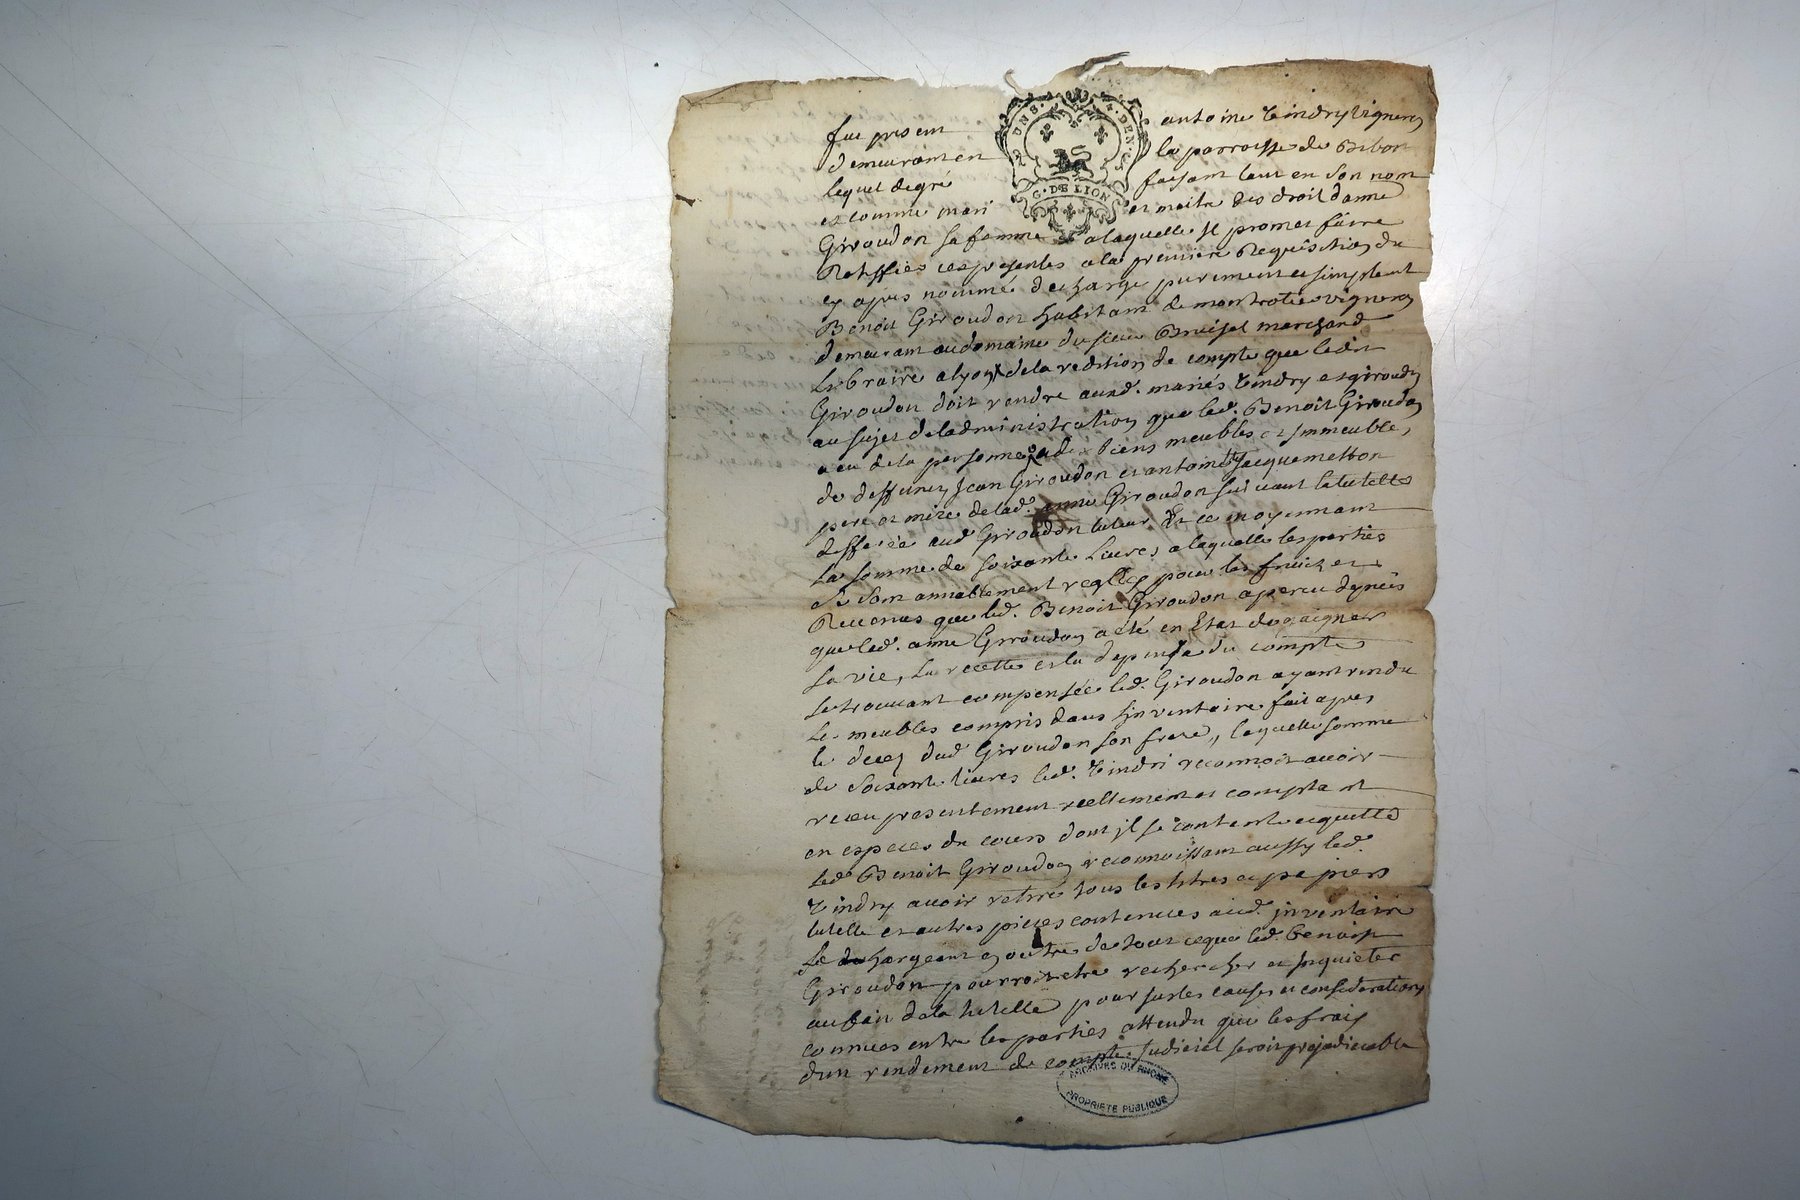 UN S. 4. DEN.
G. DE LION
fut present antoine Tindry vigneron
demeurant en la parroisse de Bibost
lequel de gré faisant tant en son nom
et comme mari et maitre des droit danne
Giroudon sa femme a laquelle jl promet faire
Ratiffier ces presentes a la premiere Requisition du
cy apres nommé decharge purement et simplemt
Benoit Giroudon habitant de montrotier vigneron
demeurant au domaine du sieur Bruiset marchand
Libraire a lyon de la redition de compte que ledit
Giroudon doit rendre auxd. mariés Tindry et giroudon
au sujet de ladministration que led. Benoit Giroudon
a eu de la personne et biens meubles et Jmmeubles
de deffunts Jean Giroudon et antoinette Jacquemetton
pere et mere de lad. anne Giroudon suivant la tutelle
defferée aud Giroudon tuteur Et ce moyennant
La somme de soixante Livres a laquelle les parties
se sont amiablement reglés pour les fruits et
Revenus que led. Benoit Giroudon a perçu depuis
que lad. anne Giroudon a eté en Etat de gaigner
sa vie, La recette et la depense du compte
se trouvant compensée led. Giroudon ayant rendu
Le meubles compris dans Linventaire fait apres
le deces dud Giroudon son frere, laquelle somme
de Soixante livres led. Tindri reconnoit avoir
receu presentement reellement et comptant
en especes du cours dont jl se contente et quitte
led Benoit Giroudon reconnoissant aussy led.
Tindry avoir retiré tous les titres et papiers
tutelle et autres pieces contenues aud. jnventaire
le dechargeant en outre de tout ce que led. benoist
Giroudon pourroit etre rechercher et Jnquieter
au fait de la tutelle pour justes causes et considerations
connues entre les parties attendu que les frais
dun rendement de compte Judiciel seroit prejudiciable
ARCHIVES DU RHONE
PROPRIETE PUBLIQUE